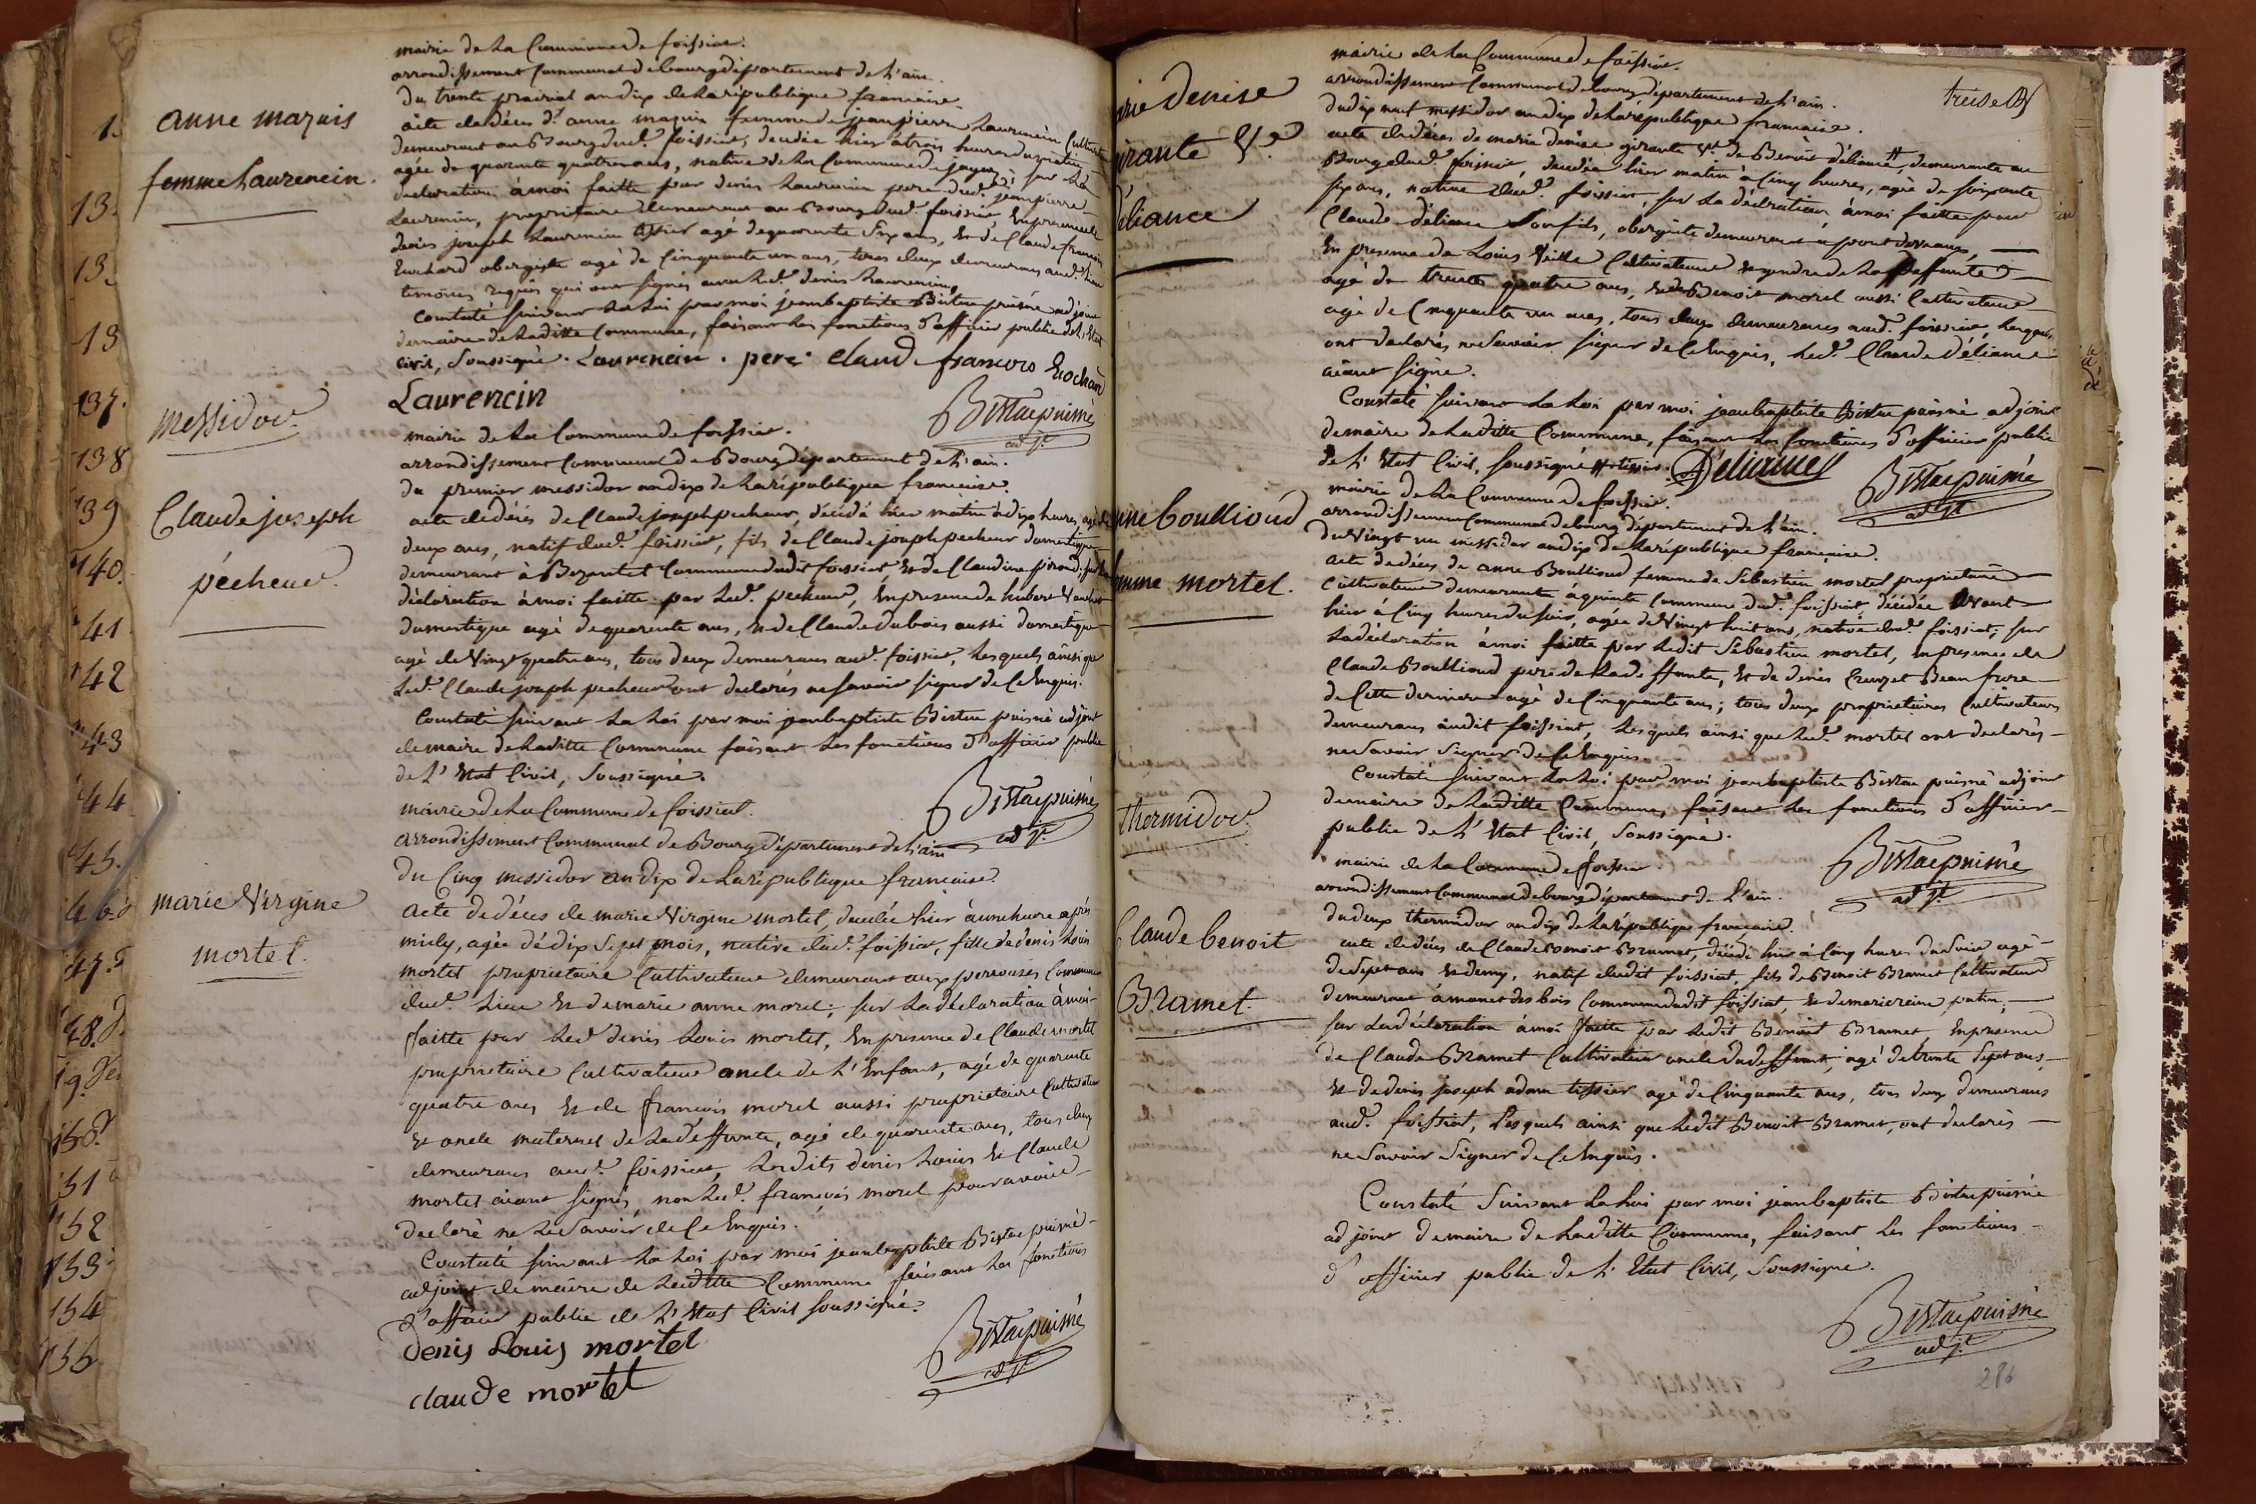 anne mazuis
femme Laurencin.
mairie de La Commune de foissiat.
arrondissement Communal de bourg département de L'ain.
Du trente prairial an dix de La république francaise.
acte de décès d'anne mazuis femme de jean pierre Laurencin Cultivateur
demeurant au Bourg dud. foissiat, décédée hier à trois heures du matin
agée de quarante quatre ans, native de La Commune de jayat; sur La
déclaration à moi faitte par denis Laurencin pere dud. jean pierre
Laurencin, propriétaire demeurant au Bourg dud. foissiat En presence de
denis joseph Laurencin tissier agé de quarante six ans, Et de Claude francois
Enchard obergiste agé de Cinquante un ans, tous deux demeurans aud. lieu
temoins requis qui ont signés avec Led. denis Laurencin,
Constaté suivant La Loi par moi jean baptiste Bistac puisné adjoint
de maire de Laditte Commune, faisant Les fonctions d'officier public de L'Etat
Civil, Soussigné. Laurencin. pere. claude francois Enchard
Laurencin
Bistac puisné
adjt
messidor.
Claude joseph
pécheur.
mairie de La Commune de foissiat.
arrondissement Communal de Bourg département de L'ain.
du premier messidor an dix de La république francaise.
acte de décès de Claude joseph pecheur, décédé hier matin à dix heures, agé de
deux ans, natif dud. foissiat, fils de Claude joseph pecheur domestique
demeurant à Bezentet Commune dudit foissiat Et de Claudine pirond; sur La
déclaration à moi faitte par Led. pecheur, En presence de hubert
domestique agé de quarente ans, Et de Claude dubois aussi domestique
agé de Vingt quatre ans, tous deux demeurans aud. foissiat, Lesquels ainsi que
Led. Claude joseph pecheur ont declarés ne Savoir signer de Ce Enquis.
Constaté suivant La Loi par moi jean baptiste Bistac puisné adjoint
de maire de Laditte Commune faisant Les fonctions d'officier public
de L'Etat Civil, Soussigné.
Bistac puisné
adjt
marie Virgine
mortel.
mairie de La Commune de foissiat.
arrondissement Communal de Bourg département de L'ain
Du Cinq messidor an dix de La république francaise.
acte de décès de marie Virgine mortel, décédée hier à une heure après
midy, agée de dix Sept mois, native dud. foissiat, fille de denis Louis
mortel propriétaire Cultivateur demeurant aux Commune
dud. Lieu Et de marie anne morel; sur La déclaration à moi
faitte par Led. denis Louis mortel, En presence de Claude mortel
proprietaire Cultivateur oncle de L'Enfant, agé de quarente
quatre ans Et de francois morel aussi proprietaire Cultivateur
Et oncle maternel de La deffunte, agé de quarente ans, tous deux
demeurans aud. foissiat, Lesdits denis Louis Et Claude
mortel aiant signés non Led. francois morel pour avoir
declaré ne Le Savoir de Ce Enquis.
Constaté suivant La Loi par moi jean baptiste Bistac puisné
adjoint de maire de Laditte Commune faisant Les fonctions
d'officier public de L'Etat Civil Soussigné.
Denis Louis mortel
claude mortel
Bistac puisné
adjt
treise
Denise
girante Ve
déliance
mairie de La Commune de foissiat.
arrondissement Communal de bourg département de L'ain.
du dix neuf messidor an dix de La république francaise.
acte de décès de marie denise girante Ve de Benoit déliance #, demeurante au
Bourg dud. foissiat, décédée hier matin à Cinq heures, agée de soixante
six ans, native dud. foissiat, sur La déclaration à moi faitte par
Claude déliance Son fils, obergiste demeurant à pont devaux,
En presence de Louis Ville Cultivateur Et gendre de La deffunte
agé de trente quatre ans, Et de Benoit morel aussi Cultivateur
agé de Cinquante un ans, tous deux demeurans aud. foissiat, Lesquels
ont declarés ne Savoir signer de Ce Enquis, Led. Claude déliance
aiant signé.
Constaté suivant La Loi par moi jean baptiste Bistac puisné adjoint
de maire de Laditte Commune, faisant Les fonctions d'officier public
de L'Etat Civil, Soussigné # tissier. Déliance
Bistac puisné
adjt
anne boullioud
femme mortel.
mairie de La Commune de foissiat.
arrondissement Communal de bourg département de L'ain.
du Vingt un messidor an dix de La république francaise.
acte de décès de anne Boullioud femme de Sébastien mortel propriétaire
Cultivateur demeurante à Commune dud. foissiat, décédée avant
hier à Cinq heures du soir, agée de Vingt huit ans, native dud. foissiat, sur
La déclaration à moi faitte par Ledit Sébastien mortel, en presence de
Claude Boullioud pere de La deffunte, Et de denis Creuzet Beau frere
de Cette derniere agé de Cinquante ans; tous deux proprietaires Cultivateurs
demeurans audit foissiat, Lesquels ainsi que Led. mortel ont declarés
ne Savoir Signer de Ce Enquis.
Constaté suivant La Loi par moi jean baptiste Bistac puisné adjoint
de maire de Laditte Commune, faisant Les fonctions d'officier
public de L'Etat Civil, Soussigné.
Bistac puisné
adjt
thermidor.
Claude benoit
Bramet.
mairie de La Commune de foissiat.
arrondissement Communal de bourg département de L'ain.
du deux thermidor an dix de La république francaise.
acte de décès de Claude benoit Bramet, décédé hier à Cinq heures du Soir agé
de Sept ans Et demy, natif dudit foissiat, fils de Benoit Bramet Cultivateur
demeurant à manet des bois Commune dudit foissiat, Et de marie reine patin,
sur La déclaration à moi faitte par Ledit Benoit Bramet, En presence
de Claude Bramet Cultivateur oncle du deffunt, agé de trente Sept ans,
Et de denis joseph adam tissier agé de Cinquante ans, tous deux demeurans
aud. foissiat, Lesquels ainsi que Ledit Benoit Bramet, ont declarés
ne Savoir Signer de Ce Enquis.
Constaté Suivant La Loi par moi jean baptiste Bistac puisné
adjoint de maire de Laditte Commune, faisant Les fonctions
d'officier public de L'Etat Civil, Soussigné.
Bistac puisné
adjt
286